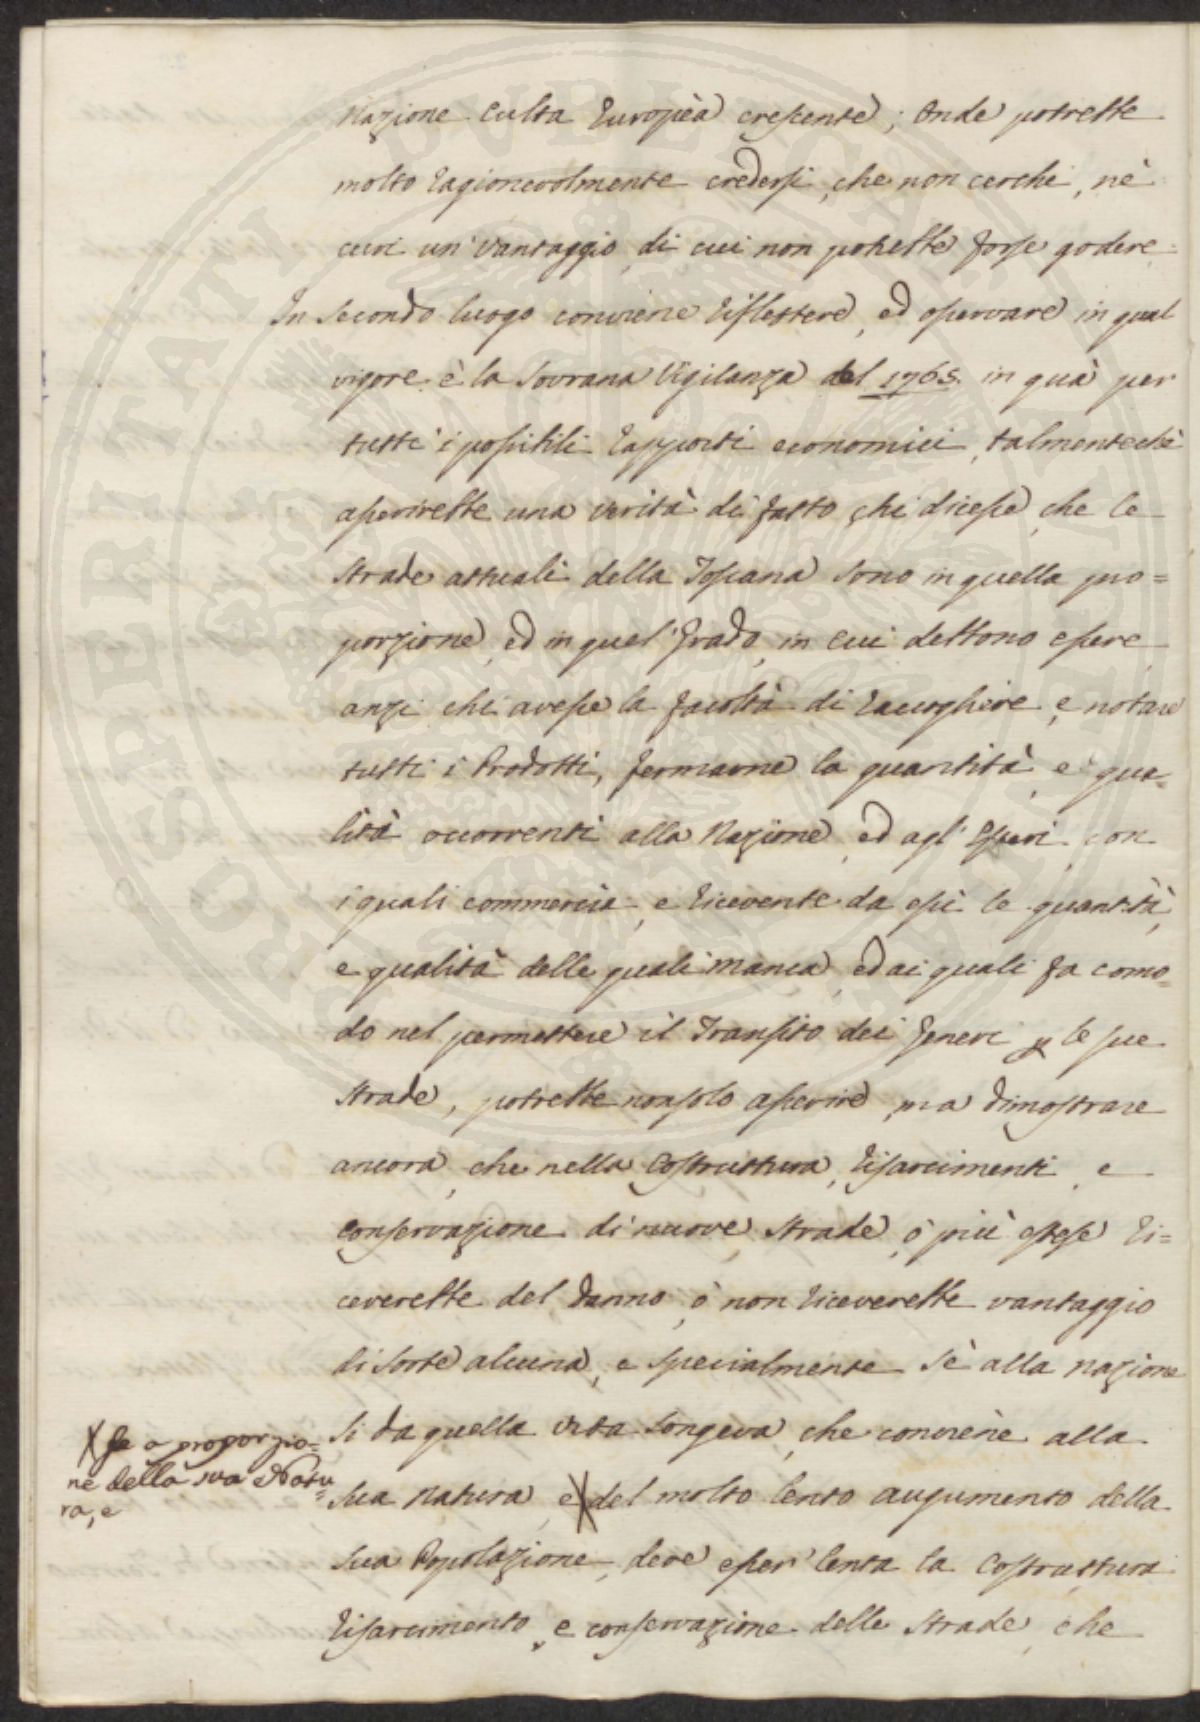 Nazione culta Europèa crescente; Onde potrebbe
molto ragionevolmente credersi, che non cerchi, nè
curi un' vantaggio, di cui non potrebbe forse godere.
In secondo luogo conviene riflettere, ed osservare in qual
vigore è la Sovrana Vigilanza del 1765. in quà per
tutti i possibili rapporti economici, talmentechè
asserirebbe una verità di fatto chi dicesse, che le
Strade attuali della Toscana sono in quella pro=
porzione, ed in quel' grado, in cui debbono essere,
anzi chi avesse la facoltà di raccogliere, e notare
tutti i Prodotti, fermarne la quantità, e qua=
lità occorrenti alla Nazione, ed agl' Esteri, con
i quali commercia, e ricevente da essi le quantità,
e qualità delle quali manca, ed ai quali fa como=
do nel permettere il Transito dei generi p le sue
Strade, potrebbe non solo asserire, ma dimostrare
ancora, che nella Costruttura, risarcimenti, e
conservazione di nuove Strade, ò più estese ri=
ceverebbe del danno, ò non riceverebbe vantaggio
di sorte alcuna, e specialmente sè alla nazione
si da quella vita longeva, che conviene alla
sua natura, e X del molto lento augumento della
sua Popolazione, deve esser' lenta la Costruttura
risarcimento, e conservazione delle Strade, che
X Se a proporzio=
ne della sua Natu=
ra, e
PROSPERITATI PVBLICAE